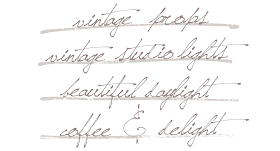 vintage props
vintage studio lights
beautiful daylight
coffee & delight